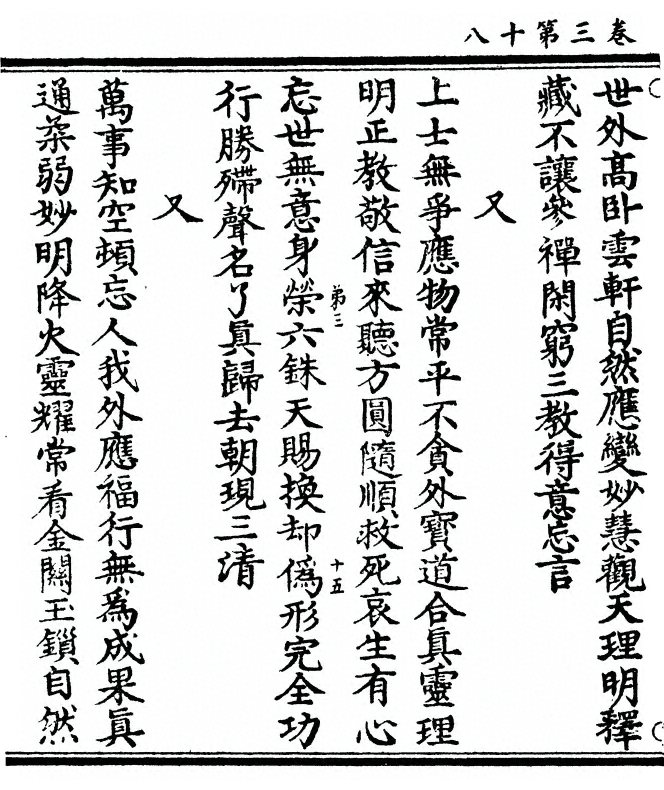 卷三第十八
世外高卧雲軒自然應變妙慧觀天理明釋
藏不讓參禪閑窮三教得意忘言
又
上士無爭應物常平不貪外寶道合眞靈理
明正教敬信來聽方圓隨順救死哀生有心
忘世無意身榮六銖天賜換却僞形完全功
第三
十五
行勝殢聲名了眞歸去朝現三清
又
萬事知空頓忘人我外應福行無爲成果眞
通柔弱妙明降火靈耀常看金關玉鎖自然